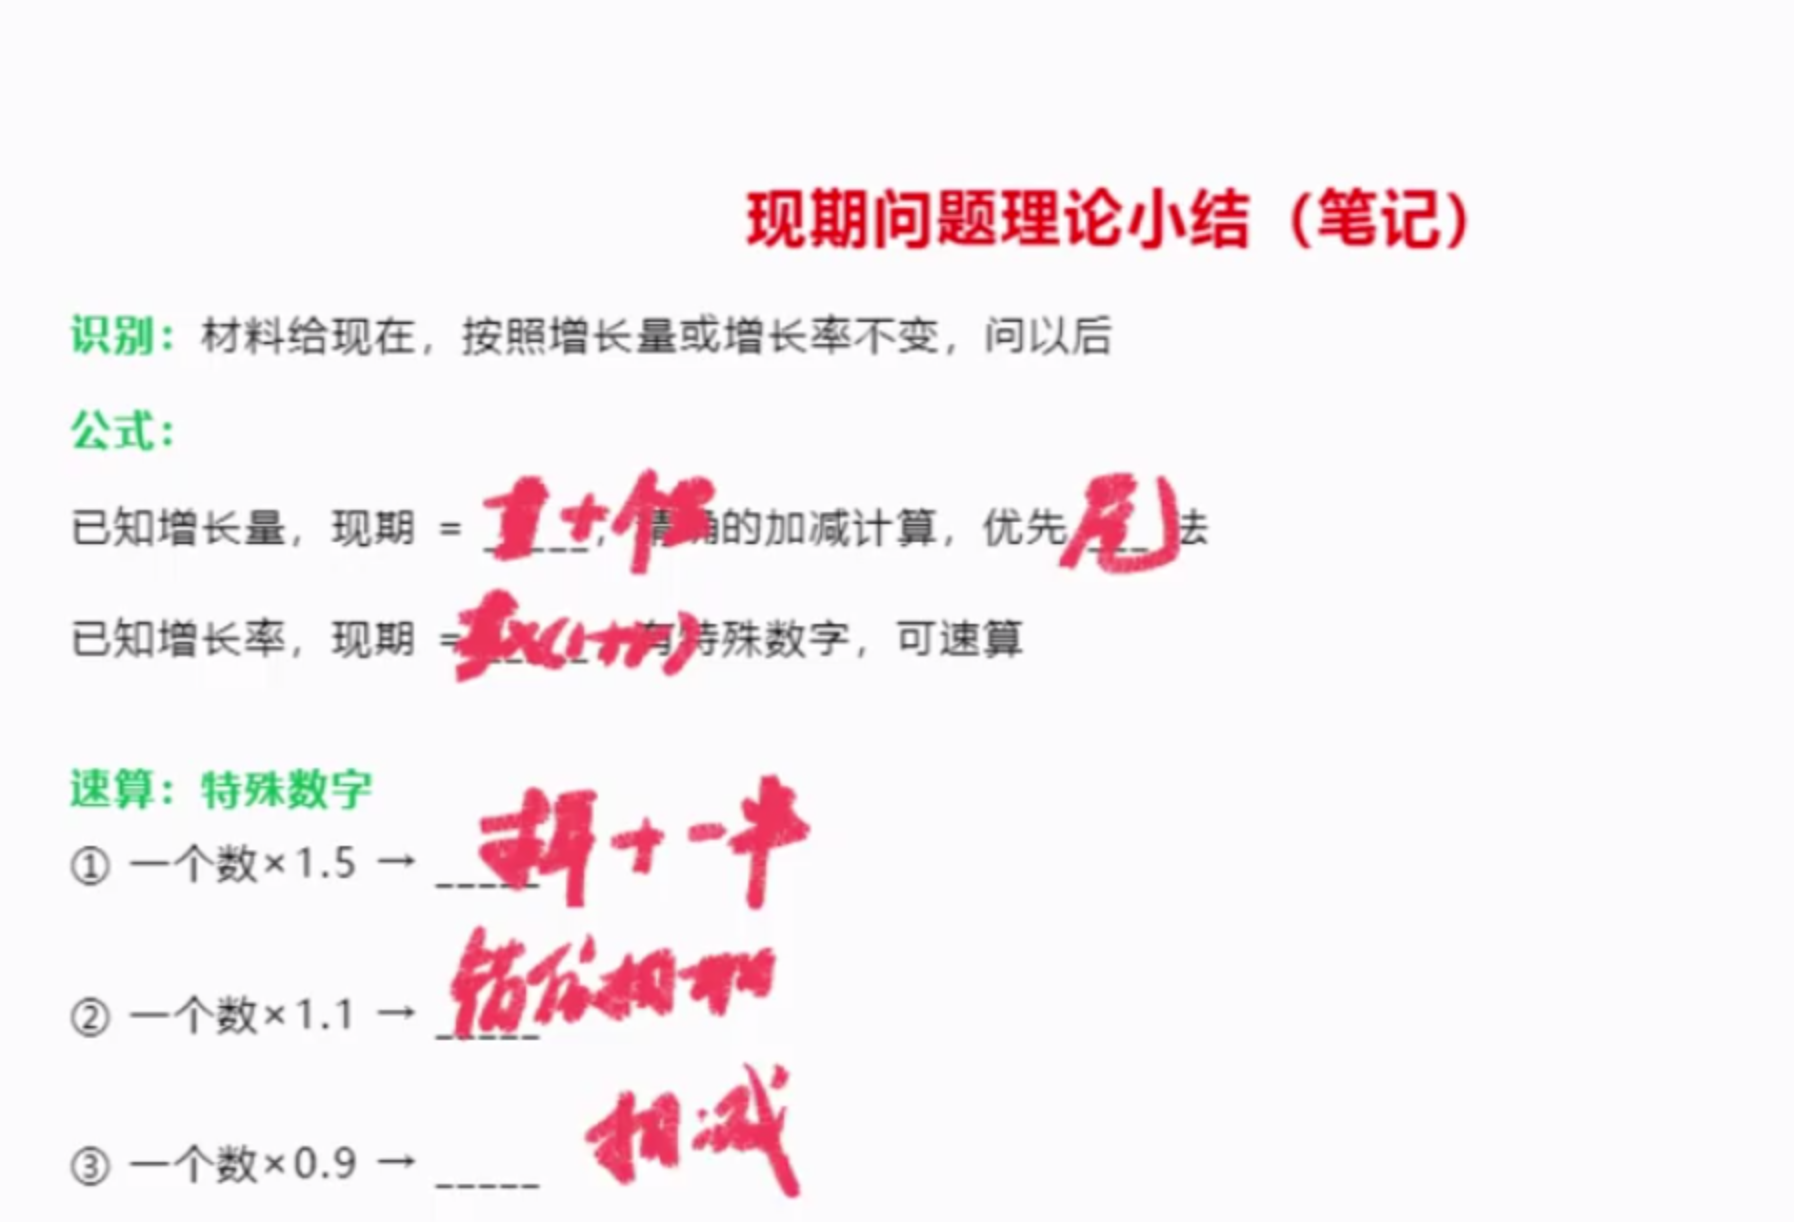 现期问题理论小结（笔记）
识别：材料给现在，按照增长量或增长率不变，问以后
公式：
已知增长量，现期 = _____，精确的加减计算，优先 尾 法
已知增长率，现期 = ×(1+r) 有特殊数字，可速算
速算：特殊数字
① 一个数×1.5 → _____ + 一半
② 一个数×1.1 → 错位相加
③ 一个数×0.9 → _____ 相减